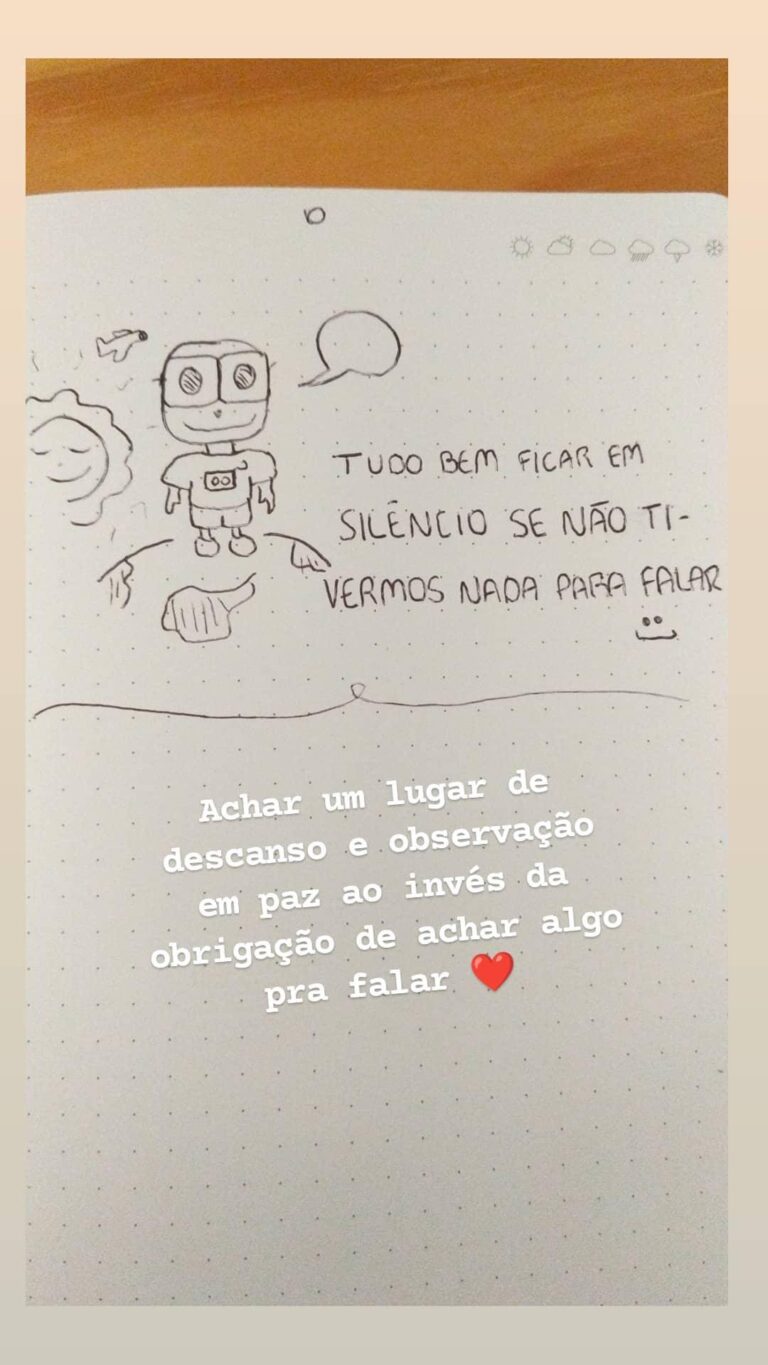 TUDO BEM FICAR EM
SILÊNCIO SE NÃO TI-
VERMOS NADA PARA FALAR
Achar um lugar de
descanso e observação
em paz ao invés da
obrigação de achar algo
pra falar ❤️